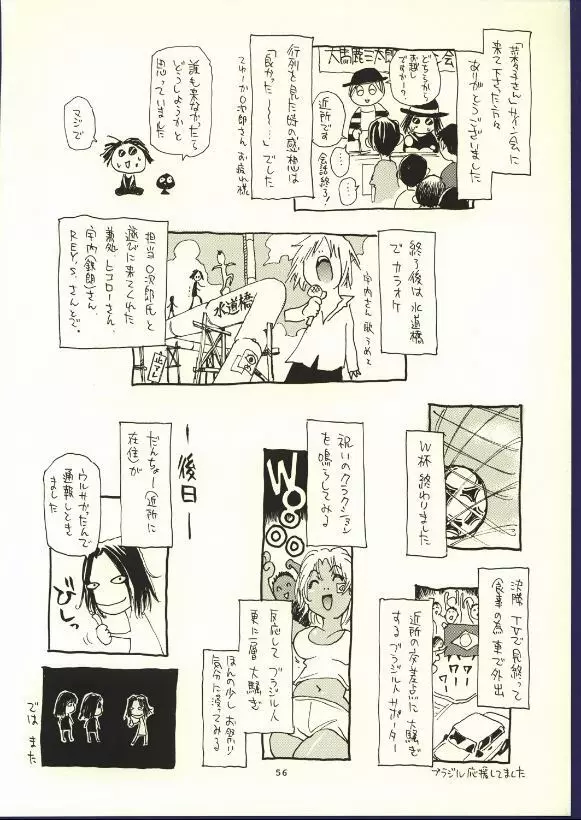 「菜々子さん」サイン会に
来て下さった方々
ありがとうございました
大馬鹿三太郎
会
どちらから
お越し
ですかー?
近所です
会話終了!
行列を見た時の感想は
「良かった〜〜…」でした
てゆーか〇次郎さん お疲れ様
誰も来なかったら
どうしようかと
思っていました
マジで
終了後は水道橋
でカラオケ
宇内さん 歌うめぇ
水道橋
止マレ
担当〇次郎氏と
遊びに来てくれた
兼処、ヒヨローさん、
宇内(鉄朗)さん、
REY.S.さんとで。
W杯 終わりました
決勝 TVで見終って
食事の為 車で外出
近所の交差点に大騒ぎ
するブラジル人サポーター
ワワワワ
ブラジル応援してました
祝いのクラクション
を鳴らしてみる
WOOOO
反応して ブラジル人
更に一層 大騒ぎ
ほんの少し お祭り
気分に浸ってみる
ー後日ー
だんちょー(近所に
在住)が
ウルサかったんで
通報しときました
びしっ
では また
56